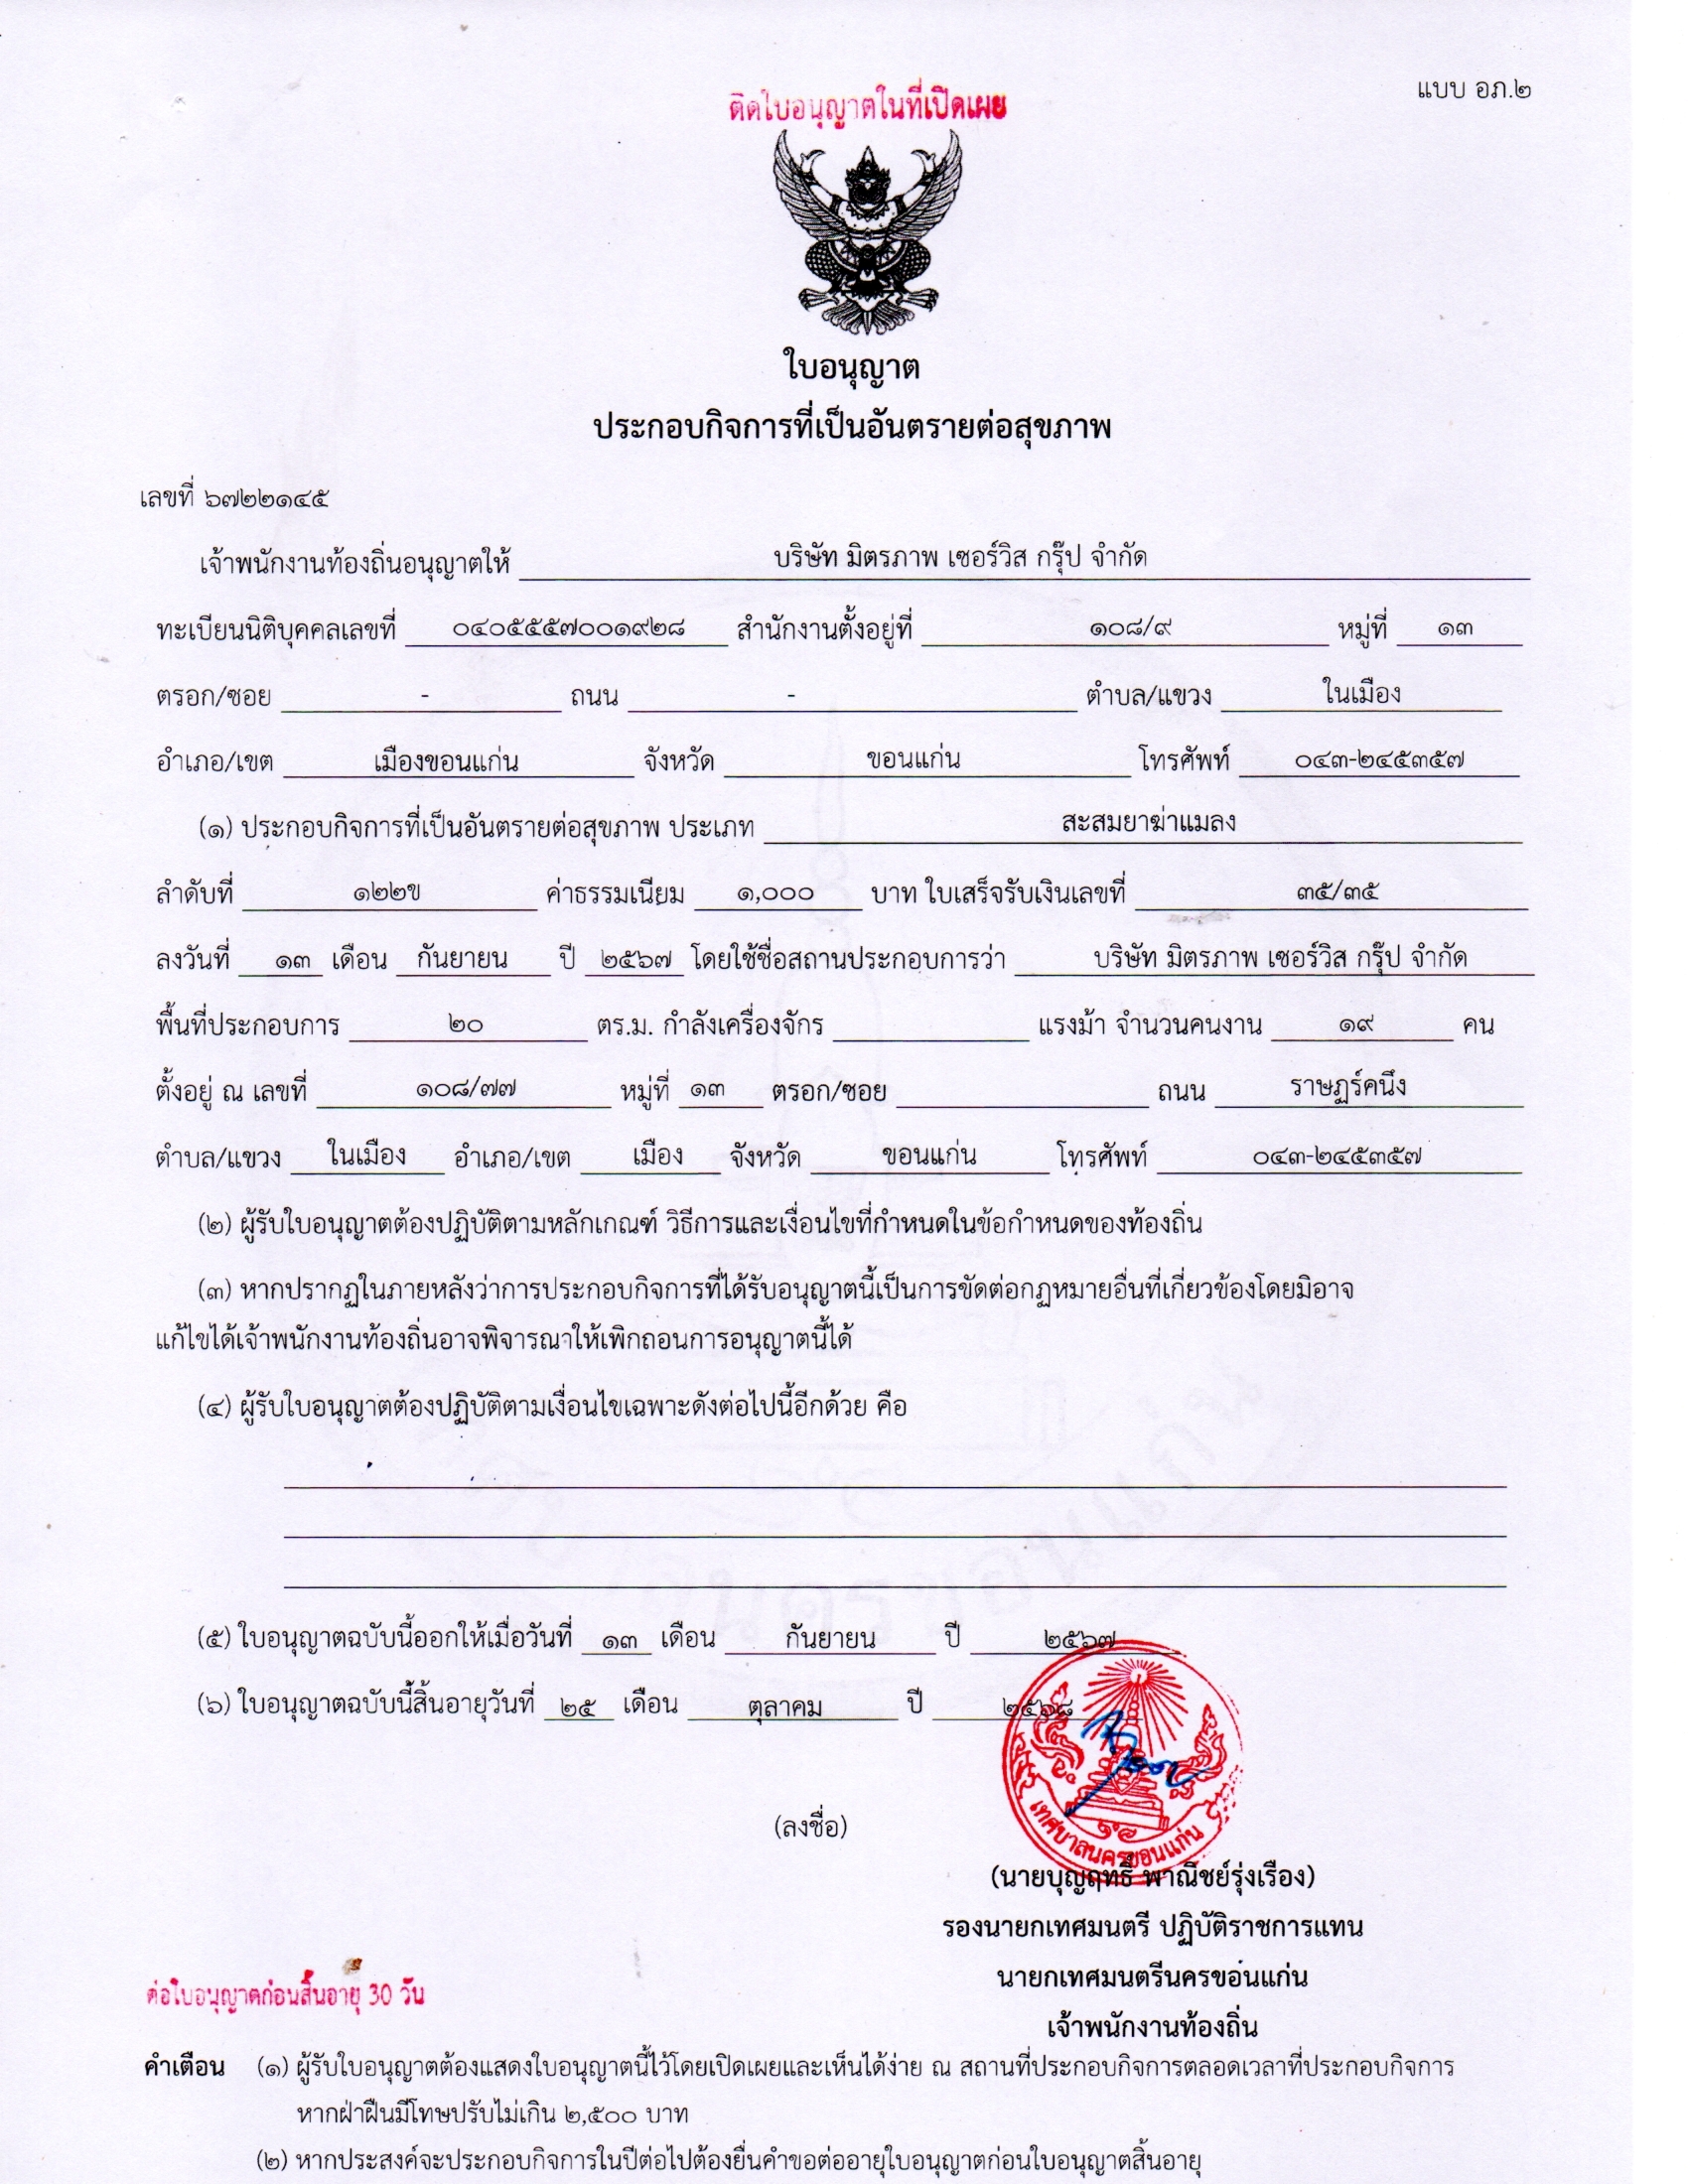 แบบ อภ.๒
ติดใบอนุญาตในที่เปิดเผย
ใบอนุญาต
ประกอบกิจการที่เป็นอันตรายต่อสุขภาพ
เลขที่ ๖๗๒๒๑๔๕
เจ้าพนักงานท้องถิ่นอนุญาตให้ บริษัท มิตรภาพ เซอร์วิส กรุ๊ป จำกัด
ทะเบียนนิติบุคคลเลขที่ ๐๔๐๕๕๕๗๐๐๑๙๒๘ สำนักงานตั้งอยู่ที่ ๑๐๘/๙ หมู่ที่ ๑๓
ตรอก/ซอย - ถนน - ตำบล/แขวง ในเมือง
อำเภอ/เขต เมืองขอนแก่น จังหวัด ขอนแก่น โทรศัพท์ ๐๔๓-๒๔๕๓๕๗
(๑) ประกอบกิจการที่เป็นอันตรายต่อสุขภาพ ประเภท สะสมยาฆ่าแมลง
ลำดับที่ ๑๒๒ข ค่าธรรมเนียม ๑,๐๐๐ บาท ใบเสร็จรับเงินเลขที่ ๓๕/๓๕
ลงวันที่ ๑๓ เดือน กันยายน ปี ๒๕๖๗ โดยใช้ชื่อสถานประกอบการว่า บริษัท มิตรภาพ เซอร์วิส กรุ๊ป จำกัด
พื้นที่ประกอบการ ๒๐ ตร.ม. กำลังเครื่องจักร แรงม้า จำนวนคนงาน ๑๙ คน
ตั้งอยู่ ณ เลขที่ ๑๐๘/๗๗ หมู่ที่ ๑๓ ตรอก/ซอย ถนน ราษฎร์คนึง
ตำบล/แขวง ในเมือง อำเภอ/เขต เมือง จังหวัด ขอนแก่น โทรศัพท์ ๐๔๓-๒๔๕๓๕๗
(๒) ผู้รับใบอนุญาตต้องปฏิบัติตามหลักเกณฑ์ วิธีการและเงื่อนไขที่กำหนดในข้อกำหนดของท้องถิ่น
(๓) หากปรากฏในภายหลังว่าการประกอบกิจการที่ได้รับอนุญาตนี้เป็นการขัดต่อกฎหมายอื่นที่เกี่ยวข้องโดยมิอาจ
แก้ไขได้เจ้าพนักงานท้องถิ่นอาจพิจารณาให้เพิกถอนการอนุญาตนี้ได้
(๔) ผู้รับใบอนุญาตต้องปฏิบัติตามเงื่อนไขเฉพาะดังต่อไปนี้อีกด้วย คือ
(๕) ใบอนุญาตฉบับนี้ออกให้เมื่อวันที่ ๑๓ เดือน กันยายน ปี ๒๕๖๗
(๖) ใบอนุญาตฉบับนี้สิ้นอายุวันที่ ๒๕ เดือน ตุลาคม ปี ๒๕๖๘
(ลงชื่อ)
เทศบาลนครขอนแก่น
(นายบุญฤทธิ์ พาณิชย์รุ่งเรือง)
รองนายกเทศมนตรี ปฏิบัติราชการแทน
นายกเทศมนตรีนครขอนแก่น
เจ้าพนักงานท้องถิ่น
ต่อใบอนุญาตก่อนสิ้นอายุ 30 วัน
คำเตือน (๑) ผู้รับใบอนุญาตต้องแสดงใบอนุญาตนี้ไว้โดยเปิดเผยและเห็นได้ง่าย ณ สถานที่ประกอบกิจการตลอดเวลาที่ประกอบกิจการ
หากฝ่าฝืนมีโทษปรับไม่เกิน ๒,๕๐๐ บาท
(๒) หากประสงค์จะประกอบกิจการในปีต่อไปต้องยื่นคำขอต่ออายุใบอนุญาตก่อนใบอนุญาตสิ้นอายุ